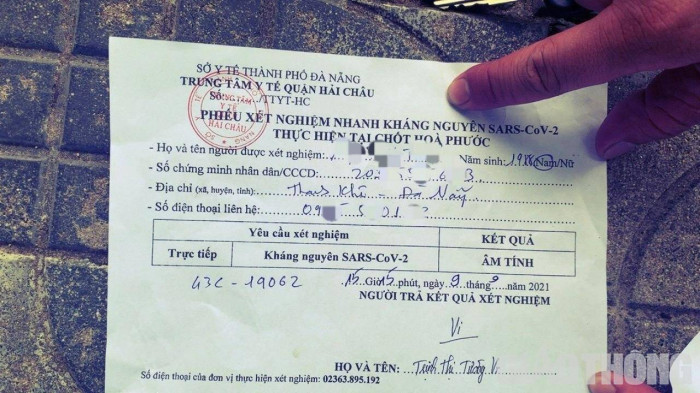 SỞ Y TẾ THÀNH PHỐ ĐÀ NẴNG
TRUNG TÂM Y TẾ QUẬN HẢI CHÂU
Số:....../TTYT-HC
TRUNG TÂM
Y TẾ
HẢI CHÂU
PHIẾU XÉT NGHIỆM NHANH KHÁNG NGUYÊN SARS-CoV-2
THỰC HIỆN TẠI CHỐT HOÀ PHƯỚC
- Họ và tên người được xét nghiệm: Năm sinh: Nam/Nữ
- Số chứng minh nhân dân/CCCD:
- Địa chỉ (xã, huyện, tỉnh): Thanh Khê - Đà Nẵng
- Số điện thoại liên hệ:
Yêu cầu xét nghiệm KẾT QUẢ
Trực tiếp Kháng nguyên SARS-CoV-2 ÂM TÍNH
43C - 19062 15 Giờ 15 phút, ngày 9 tháng 9 năm 2021
NGƯỜI TRẢ KẾT QUẢ XÉT NGHIỆM
Vi
HỌ VÀ TÊN: Trịnh Thị Tường Vi
Số điện thoại của đơn vị thực hiện xét nghiệm: 02363.895.192